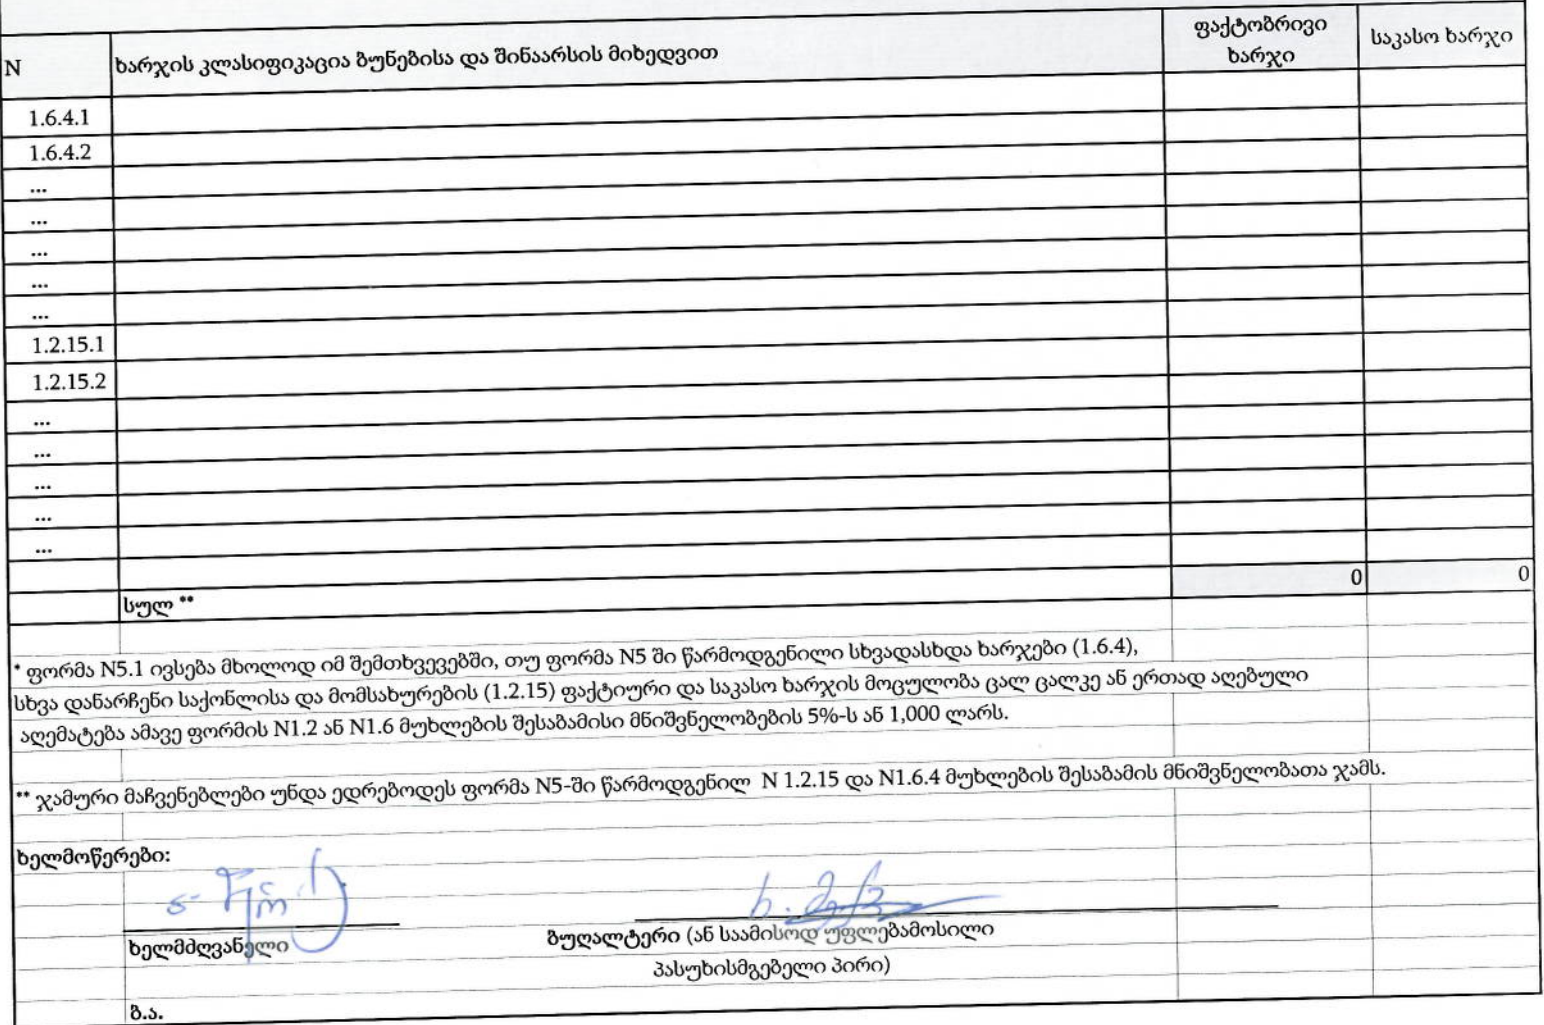 N ხარჯის კლასიფიკაცია ბუნებისა და შინაარსის მიხედვით ფაქტობრივი ხარჯი საკასო ხარჯი
1.6.4.1
1.6.4.2
...
...
...
...
...
1.2.15.1
1.2.15.2
...
...
...
...
...
სულ ** 0 0
* ფორმა N5.1 ივსება მხოლოდ იმ შემთხვევებში, თუ ფორმა N5 ში წარმოდგენილი სხვადასხდა ხარჯები (1.6.4),
სხვა დანარჩენი საქონლისა და მომსახურების (1.2.15) ფაქტიური და საკასო ხარჯის მოცულობა ცალ ცალკე ან ერთად აღებული
აღემატება ამავე ფორმის N1.2 ან N1.6 მუხლების შესაბამისი მნიშვნელობების 5%-ს ან 1,000 ლარს.
** ჯამური მაჩვენებლები უნდა ედრებოდეს ფორმა N5-ში წარმოდგენილ N 1.2.15 და N1.6.4 მუხლების შესაბამის მნიშვნელობათა ჯამს.
ხელმოწერები:
ხელმძღვანელი ბუღალტერი (ან საამისოდ უფლებამოსილი
პასუხისმგებელი პირი)
ბ.ა.